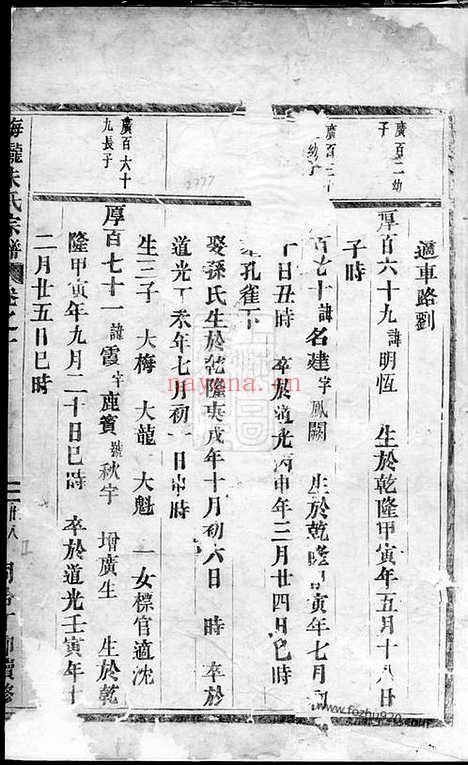 適車路劉
廣百二幼
子
厚百六十九諱明恆 生於乾隆甲寅年五月十八日
子時
幼子
百七十諱名建字鳳闕 生於乾隆甲寅年七月
日丑時 卒於道光丙申年三月廿四日巳時
孔雀下
娶孫氏生於乾隆庚戌年十月初六日 時 卒於
道光丁未年七月初一日申時
生三子 大梅 大龍 大魁 一女標官適沈
廣百六十
九長子
厚百七十一諱霞字鹿賓號秋宇 增廣生 生於乾
隆甲寅年九月二十日巳時 卒於道光壬寅年十
二月廿五日巳時
梅隴朱氏宗譜 卷之
廿八
續修
2777
nayona.cn
www.fozhu920.com